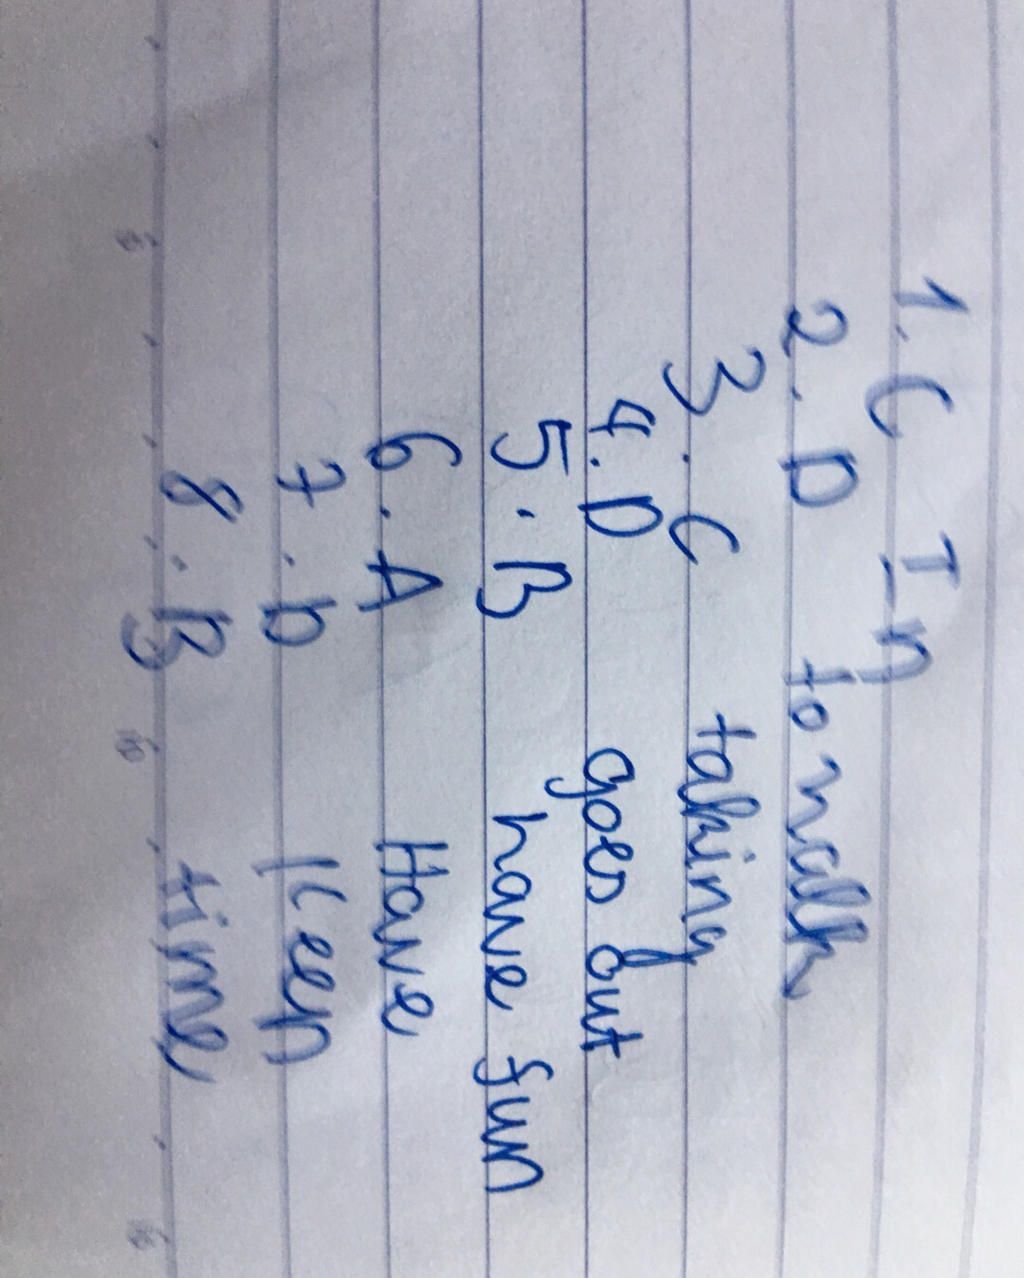 1. C In
2. D to walk
3. C taking
4. D goes out
5. B have fun
6. A Have
7. D Keep
8. B time
5
10
15